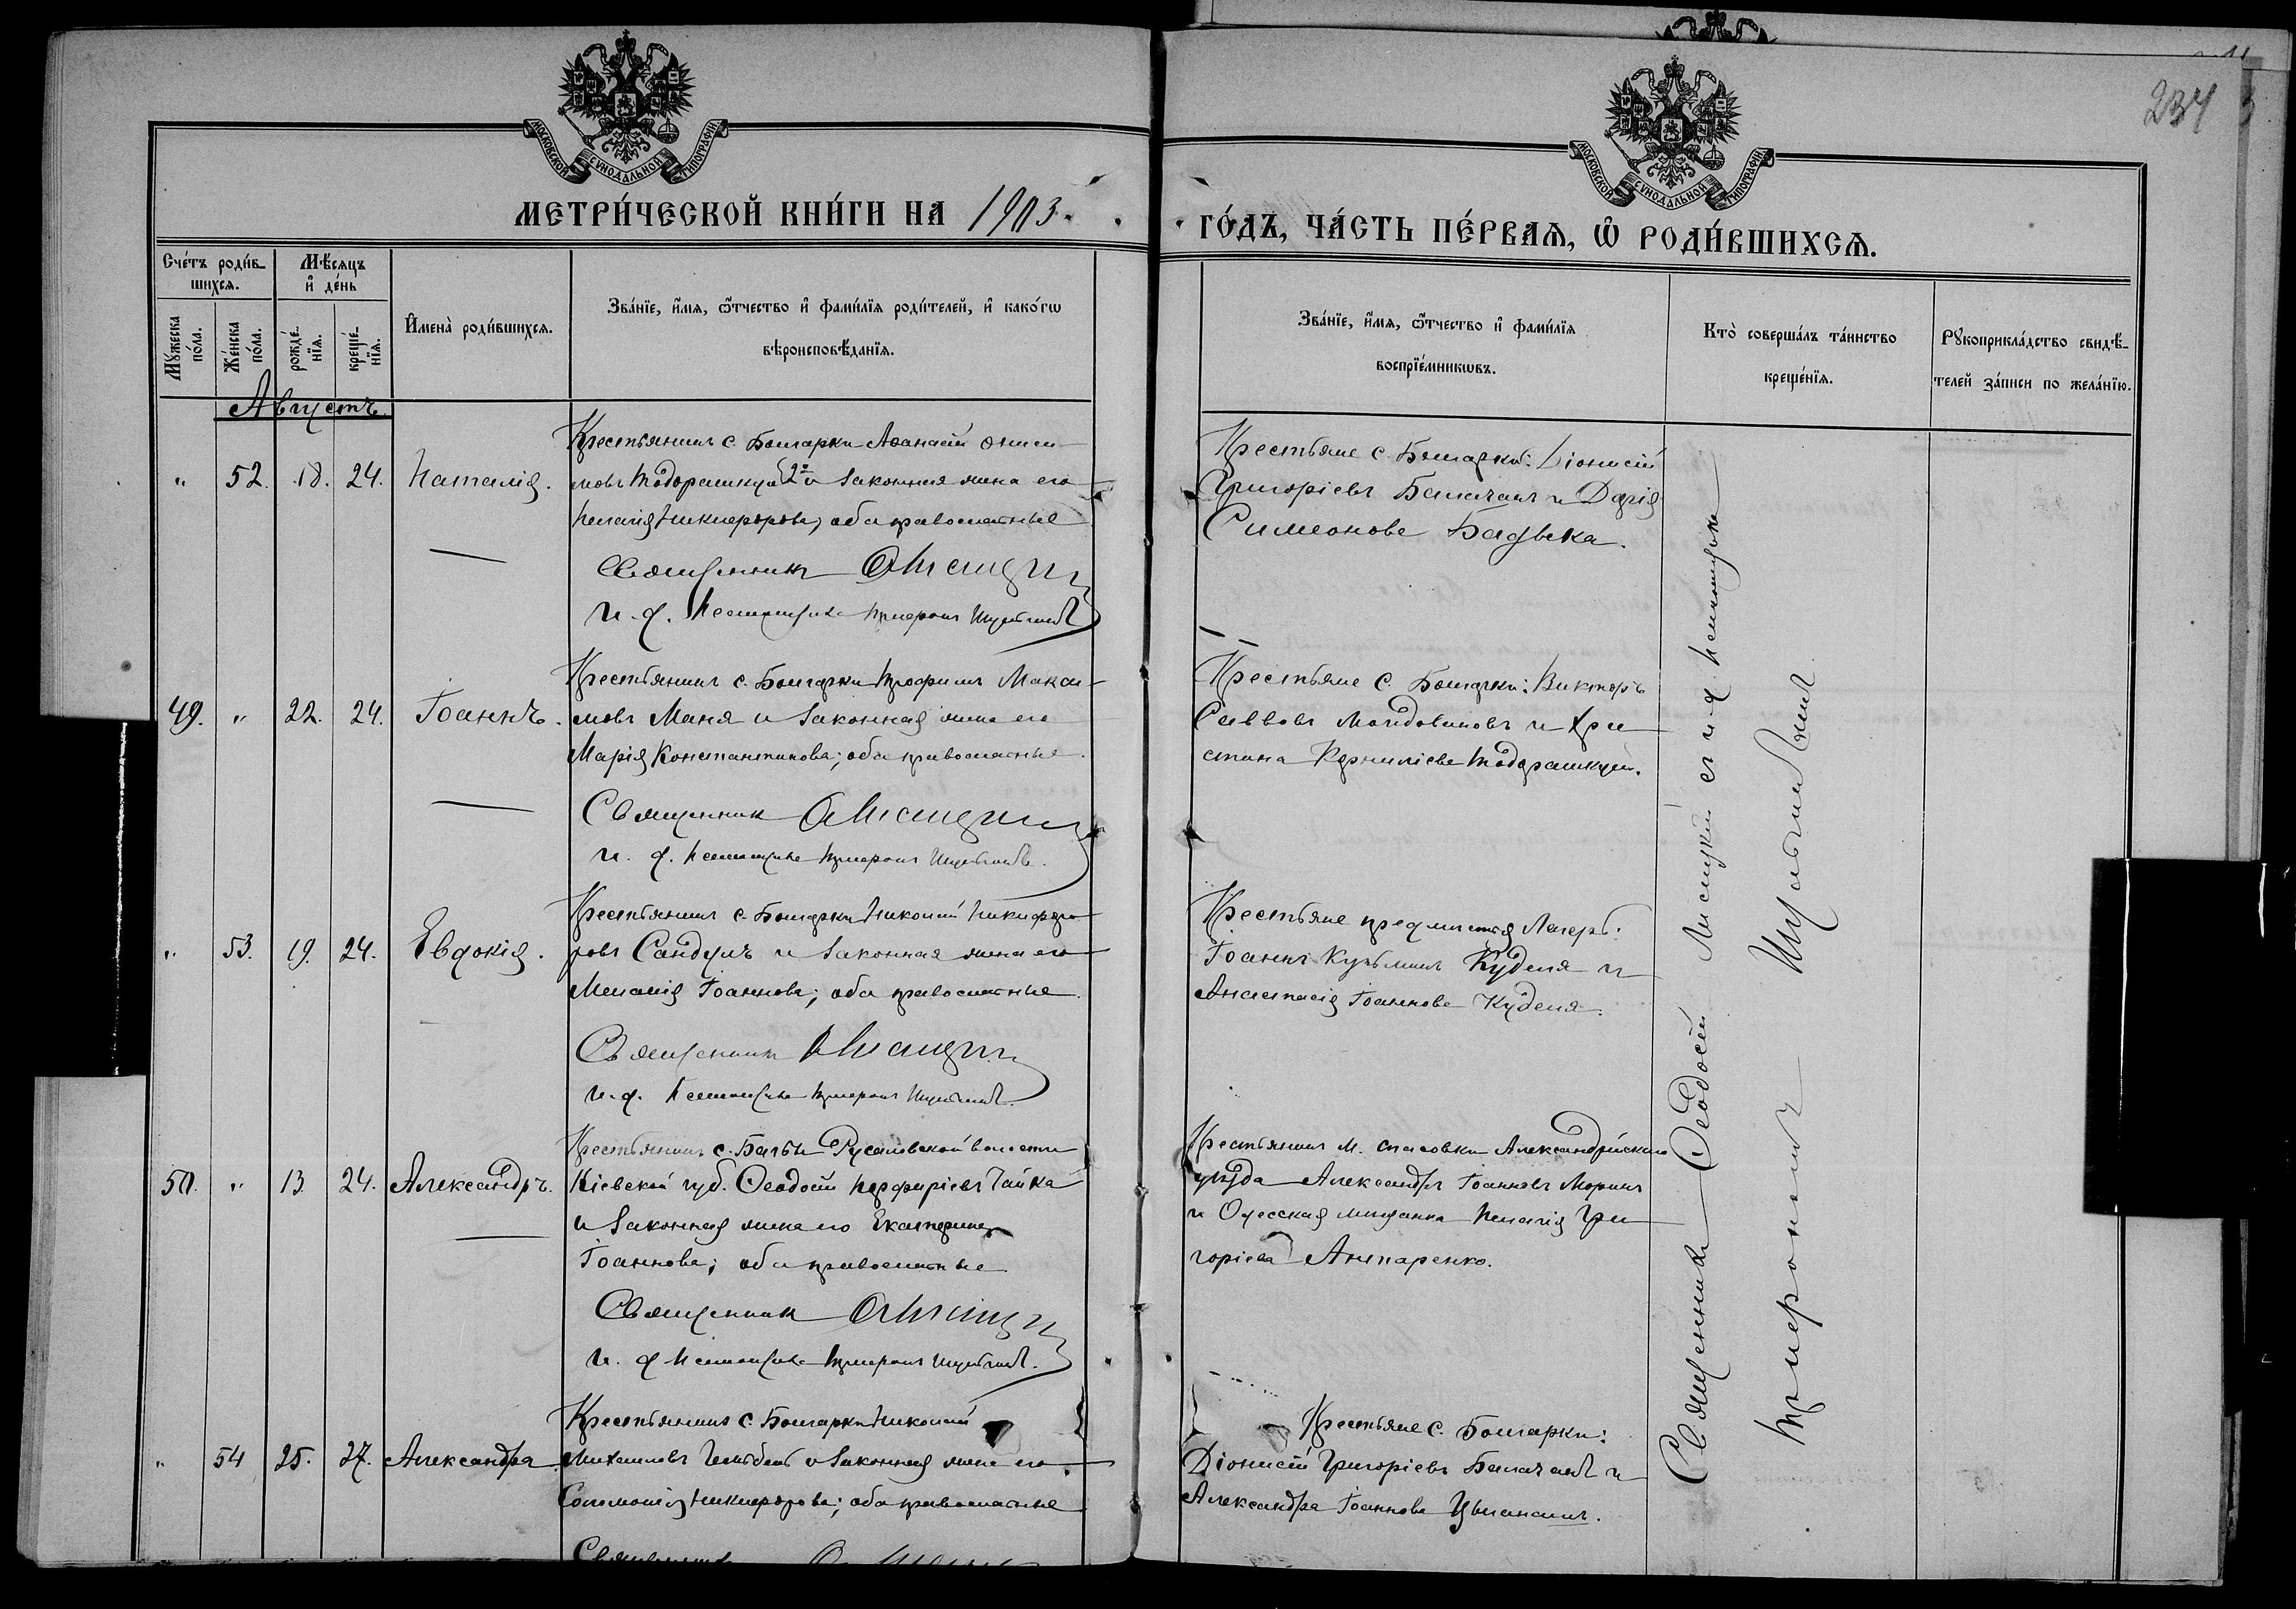 МОСКОВСКОЙ СѴНОДАЛЬНОЙ ТИПОГРАФІИ
МОСКОВСКОЙ СѴНОДАЛЬНОЙ ТИПОГРАФІИ
234
МЕТРИ́ЧЕСКОЙ КНИ́ГИ НА 1903.
ГО́ДЪ, ЧА́СТЬ ПЕ́РВАѦ, Ѡ҆ РОДИ́ВШИХСѦ.
Сче́тъ роди́в-
шихсѧ.
Мѣ́сѧцъ
и҆ де́нь
Мꙋ́жеска
по́ла.
Же́нска
по́ла.
рожде́-
нїѧ.
креще́-
нїѧ.
И҆мена̀ роди́вшихсѧ.
Зва́нїе, и҆́мѧ, ѻ҆́тчество и҆ фами́лїѧ роди́телей, и҆ како́гѡ
вѣроисповѣ́данїѧ.
Зва́нїе, и҆́мѧ, ѻ҆́тчество и҆ фами́лїѧ
воспрїе́мникѡвъ.
Кто̀ соверша́лъ та́инство
креще́нїѧ.
Рꙋкоприкла́дство свидѣ́-
телей за́писи по жела́нїю.
Августъ
" 52. 18. 24. Наталія.
Крестьянинъ с. Болгарки Аѳанасій Ониси-
мовъ Тодорашкул 2й и законная жена его
Пелагія Никифорова; оба православные
Священникъ Ѳ Лисицкій
и. д. псаломщика
Крестьяне с. Болгарки: Діонисій
Григоріевъ Балачанъ и Дарія
Симеонова Бадька.
49. " 22. 24. Іоаннъ.
Крестьянинъ с. Болгарки Трофимъ Макси-
мовъ Маня и законная жена его
Марія Константинова; оба православные.
Священникъ Ѳ Лисицкій
и. д. псаломщика
Крестьяне с. Болгарки: Викторъ
Саввовъ Молдовановъ и Хри-
стина Корниліева Тодорашкул.
" 53. 19. 24. Евдокія.
Крестьянинъ с. Болгарки Николай Никифо-
ровъ Сандулъ и законная жена его
Меланія Іоаннова; оба православные.
Священникъ Ѳ Лисицкій
и. д. псаломщика
Крестьяне предмѣстья Лагерь:
Іоаннъ Кузьминъ Куделя и
Анастасія Іоаннова Куделя.
50. " 13. 24. Александръ.
Крестьянинъ с. Русаловской волости
Кіевской губ. Ѳеодосій Порфиріевъ Чайка
и законная жена его Екатерина
Іоаннова; оба православные
Священникъ Ѳ Лисицкій
и. д. псаломщика
Крестьянинъ м. Спасовки Александрійскаго
уѣзда Александръ Іоанновъ Моринъ
и Одесская мѣщанка Пелагія Гри-
горіева
" 54 25. 27. Александра
Крестьянинъ с. Болгарки Николай
Михаиловъ и законная жена его
Соломонія Никифорова; оба православные
Священникъ Ѳ Лисицкій
Крестьяне с. Болгарки:
Діонисій Григоріевъ Балачанъ и
Александра Іоаннова
Священникъ Ѳеодосій Лисицкій съ и д псаломщика